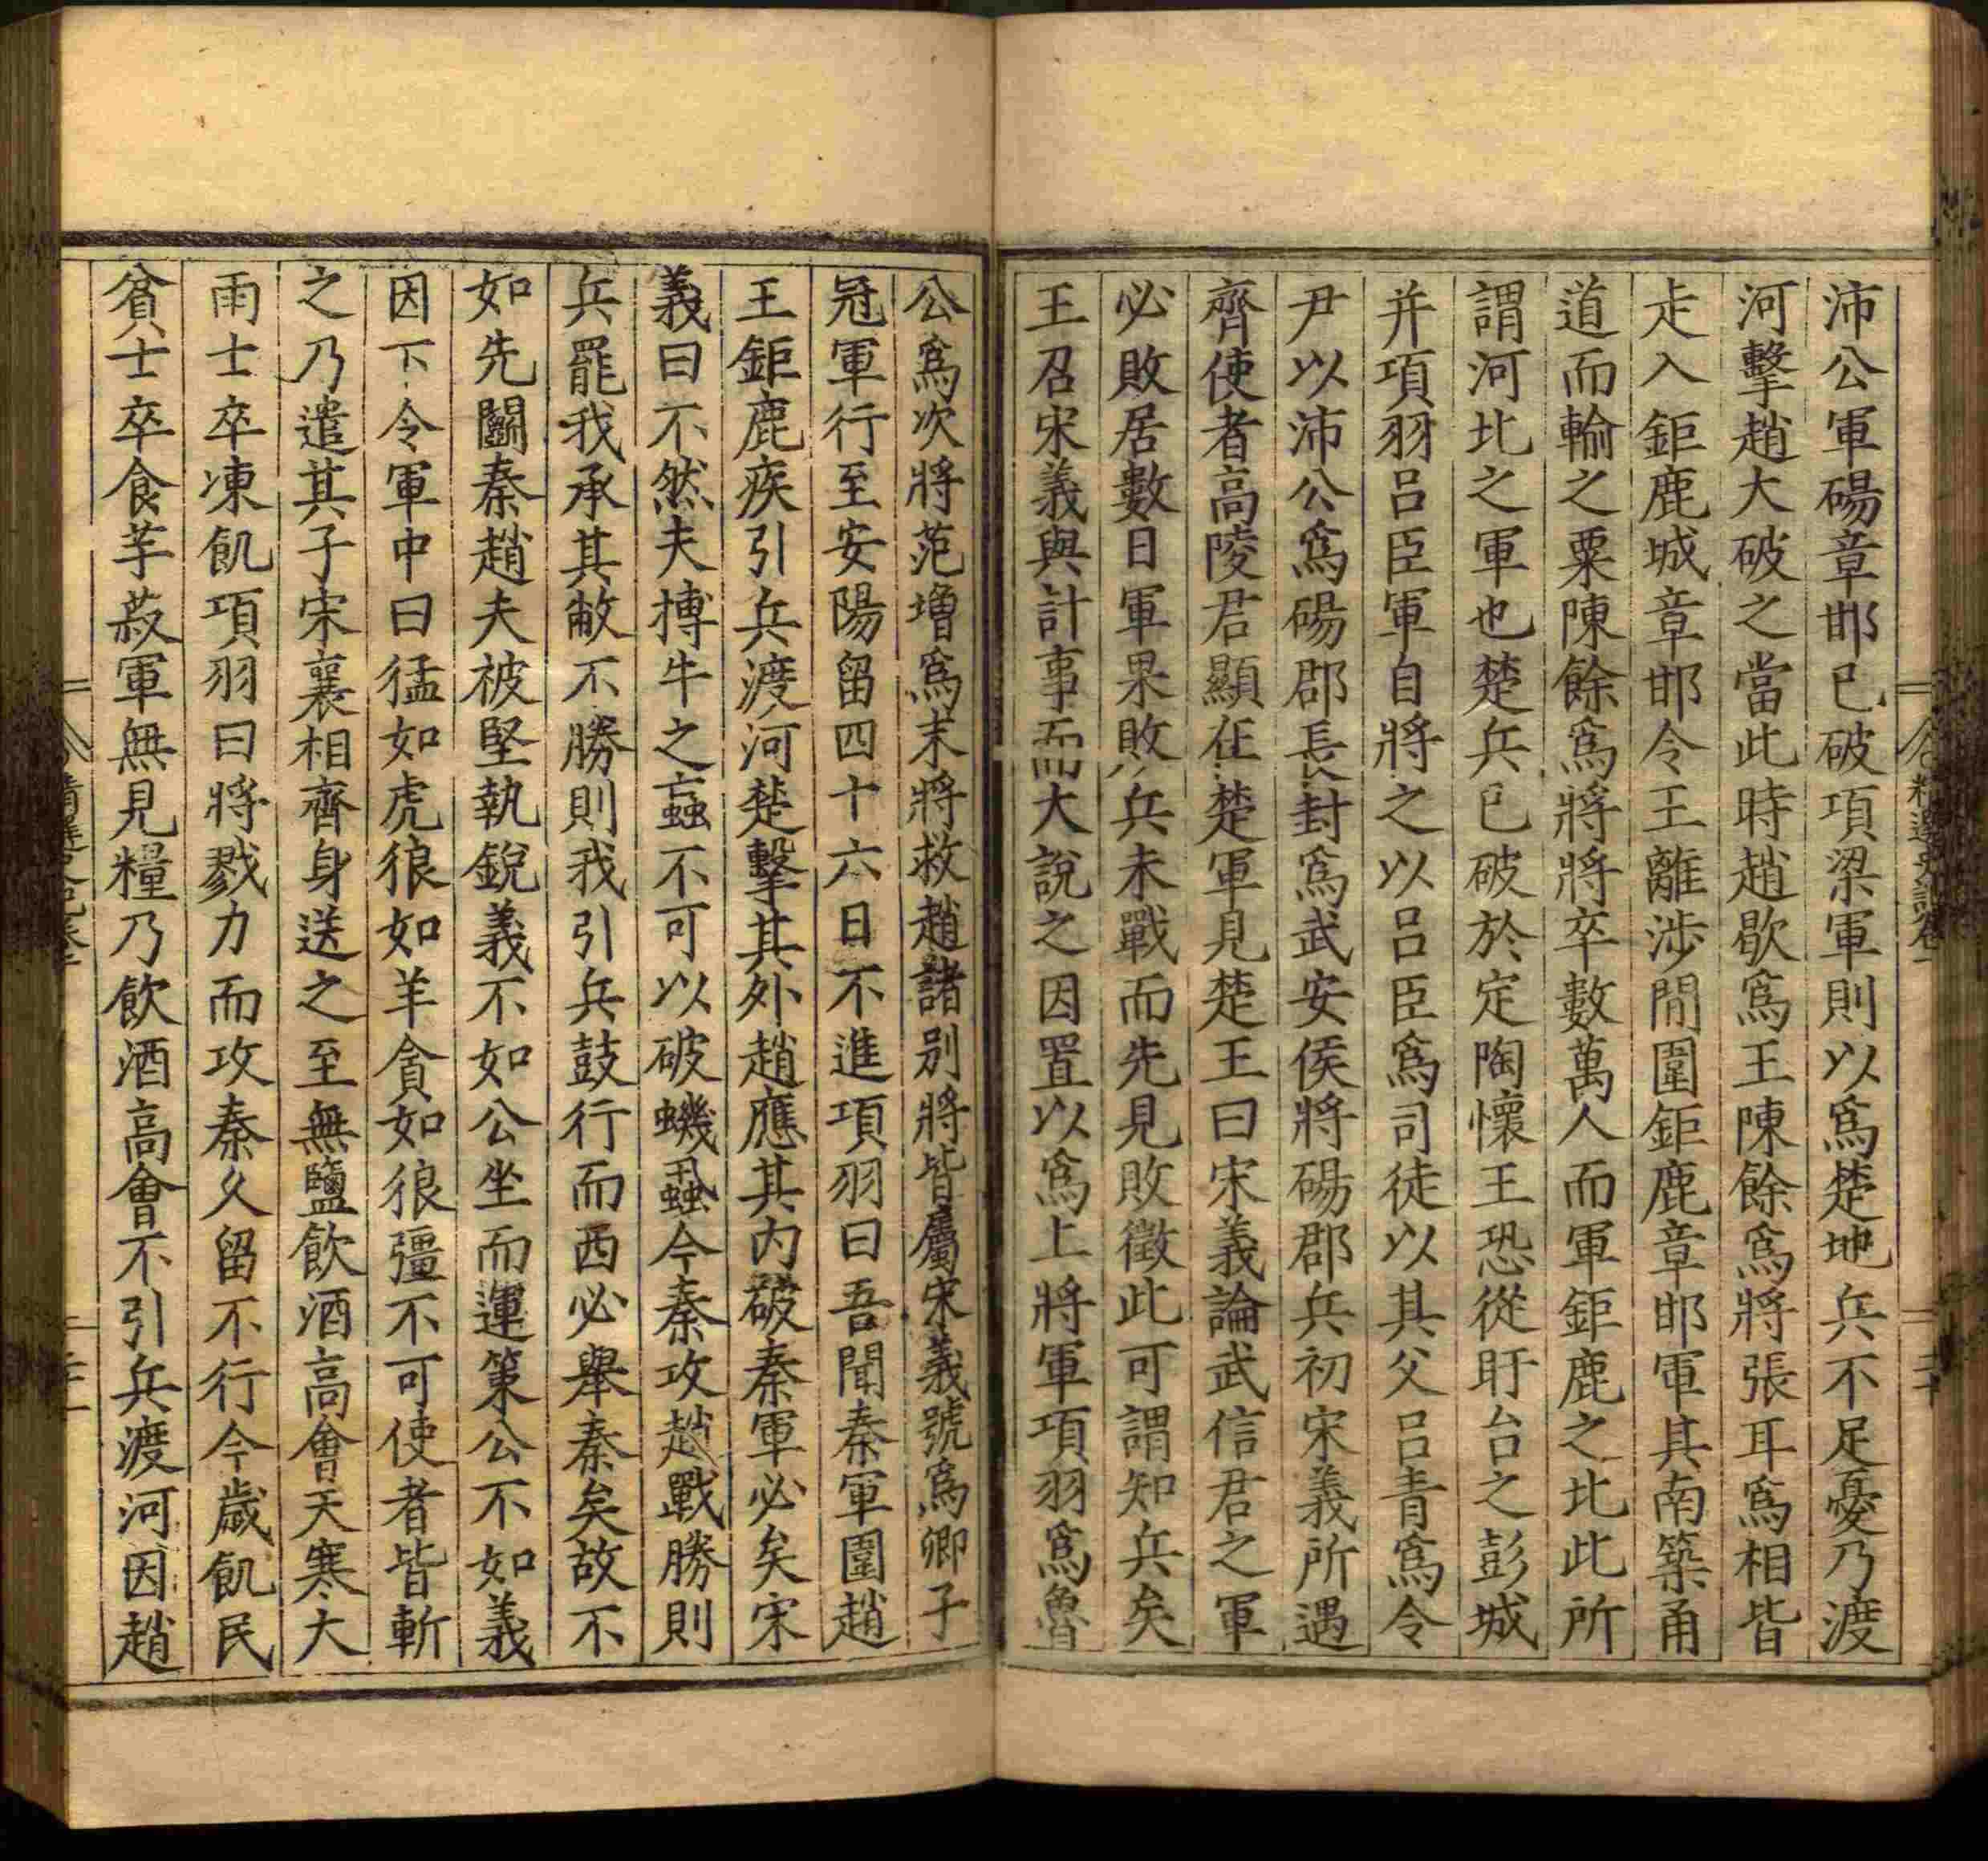 沛公軍碭章邯已破項梁軍則以爲楚地兵不足憂乃渡
河擊趙大破之當此時趙歇爲王陳餘爲將張耳爲相皆
走入鉅鹿城章邯令王離涉閒圍鉅鹿章邯軍其南築甬
道而輸之粟陳餘爲將將卒數萬人而軍鉅鹿之北此所
謂河北之軍也楚兵已破於定陶懷王恐從盱台之彭城
并項羽呂臣軍自將之以呂臣爲司徒以其父呂青爲令
尹以沛公爲碭郡長封爲武安侯將碭郡兵初宋義所遇
齊使者高陵君顯在楚軍見楚王曰宋義論武信君之軍
必敗居數日軍果敗兵未戰而先見敗徵此可謂知兵矣
王召宋義與計事而大說之因置以爲上將軍項羽爲魯
公爲次將范增爲末將救趙諸別將皆屬宋義號爲卿子
冠軍行至安陽留四十六日不進項羽曰吾聞秦軍圍趙
王鉅鹿疾引兵渡河楚擊其外趙應其內破秦軍必矣宋
義曰不然夫搏牛之蝱不可以破蟣蝨今秦攻趙戰勝則
兵罷我承其敝不勝則我引兵鼓行而西必舉秦矣故不
如先鬭秦趙夫被堅執銳義不如公坐而運策公不如義
因下令軍中曰猛如虎很如羊貪如狼彊不可使者皆斬
之乃遣其子宋襄相齊身送之至無鹽飲酒高會天寒大
雨士卒凍飢項羽曰將戮力而攻秦久留不行今歲飢民
貧士卒食芋菽軍無見糧乃飲酒高會不引兵渡河因趙